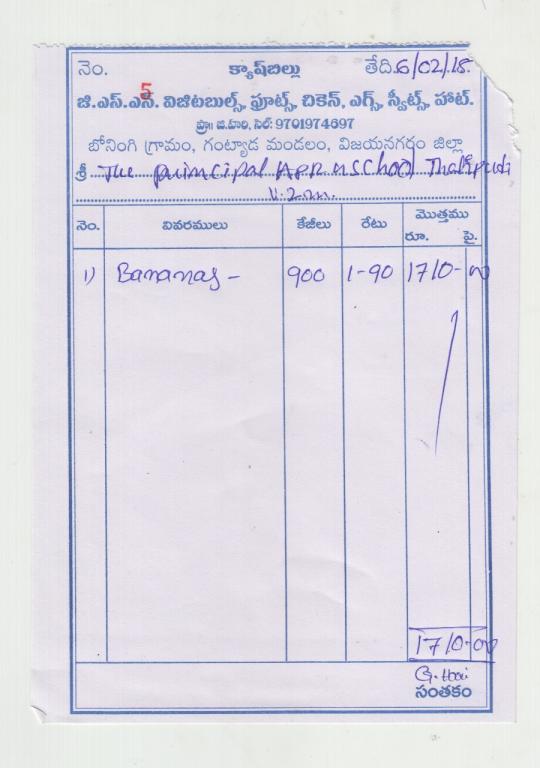 నెం. క్యాష్‌బిల్లు తేది 6/02/18.
5
జి.ఎస్.ఎన్. విజిటబుల్స్, ఫ్రూట్స్, చికెన్, ఎగ్స్, స్వీట్స్, హాట్.
ప్రొ: జి.హరి, సెల్: 9701974697
బోనింగి గ్రామం, గంట్యాడ మండలం, విజయనగరం జిల్లా
శ్రీ The principal APRM School Thatipudi
V.Z.M.
నెం. వివరములు కేజీలు రేటు మొత్తము
రూ. పై.
1) Bananas - 900 1-90 1710-00
1710-00
G. Hari
సంతకం